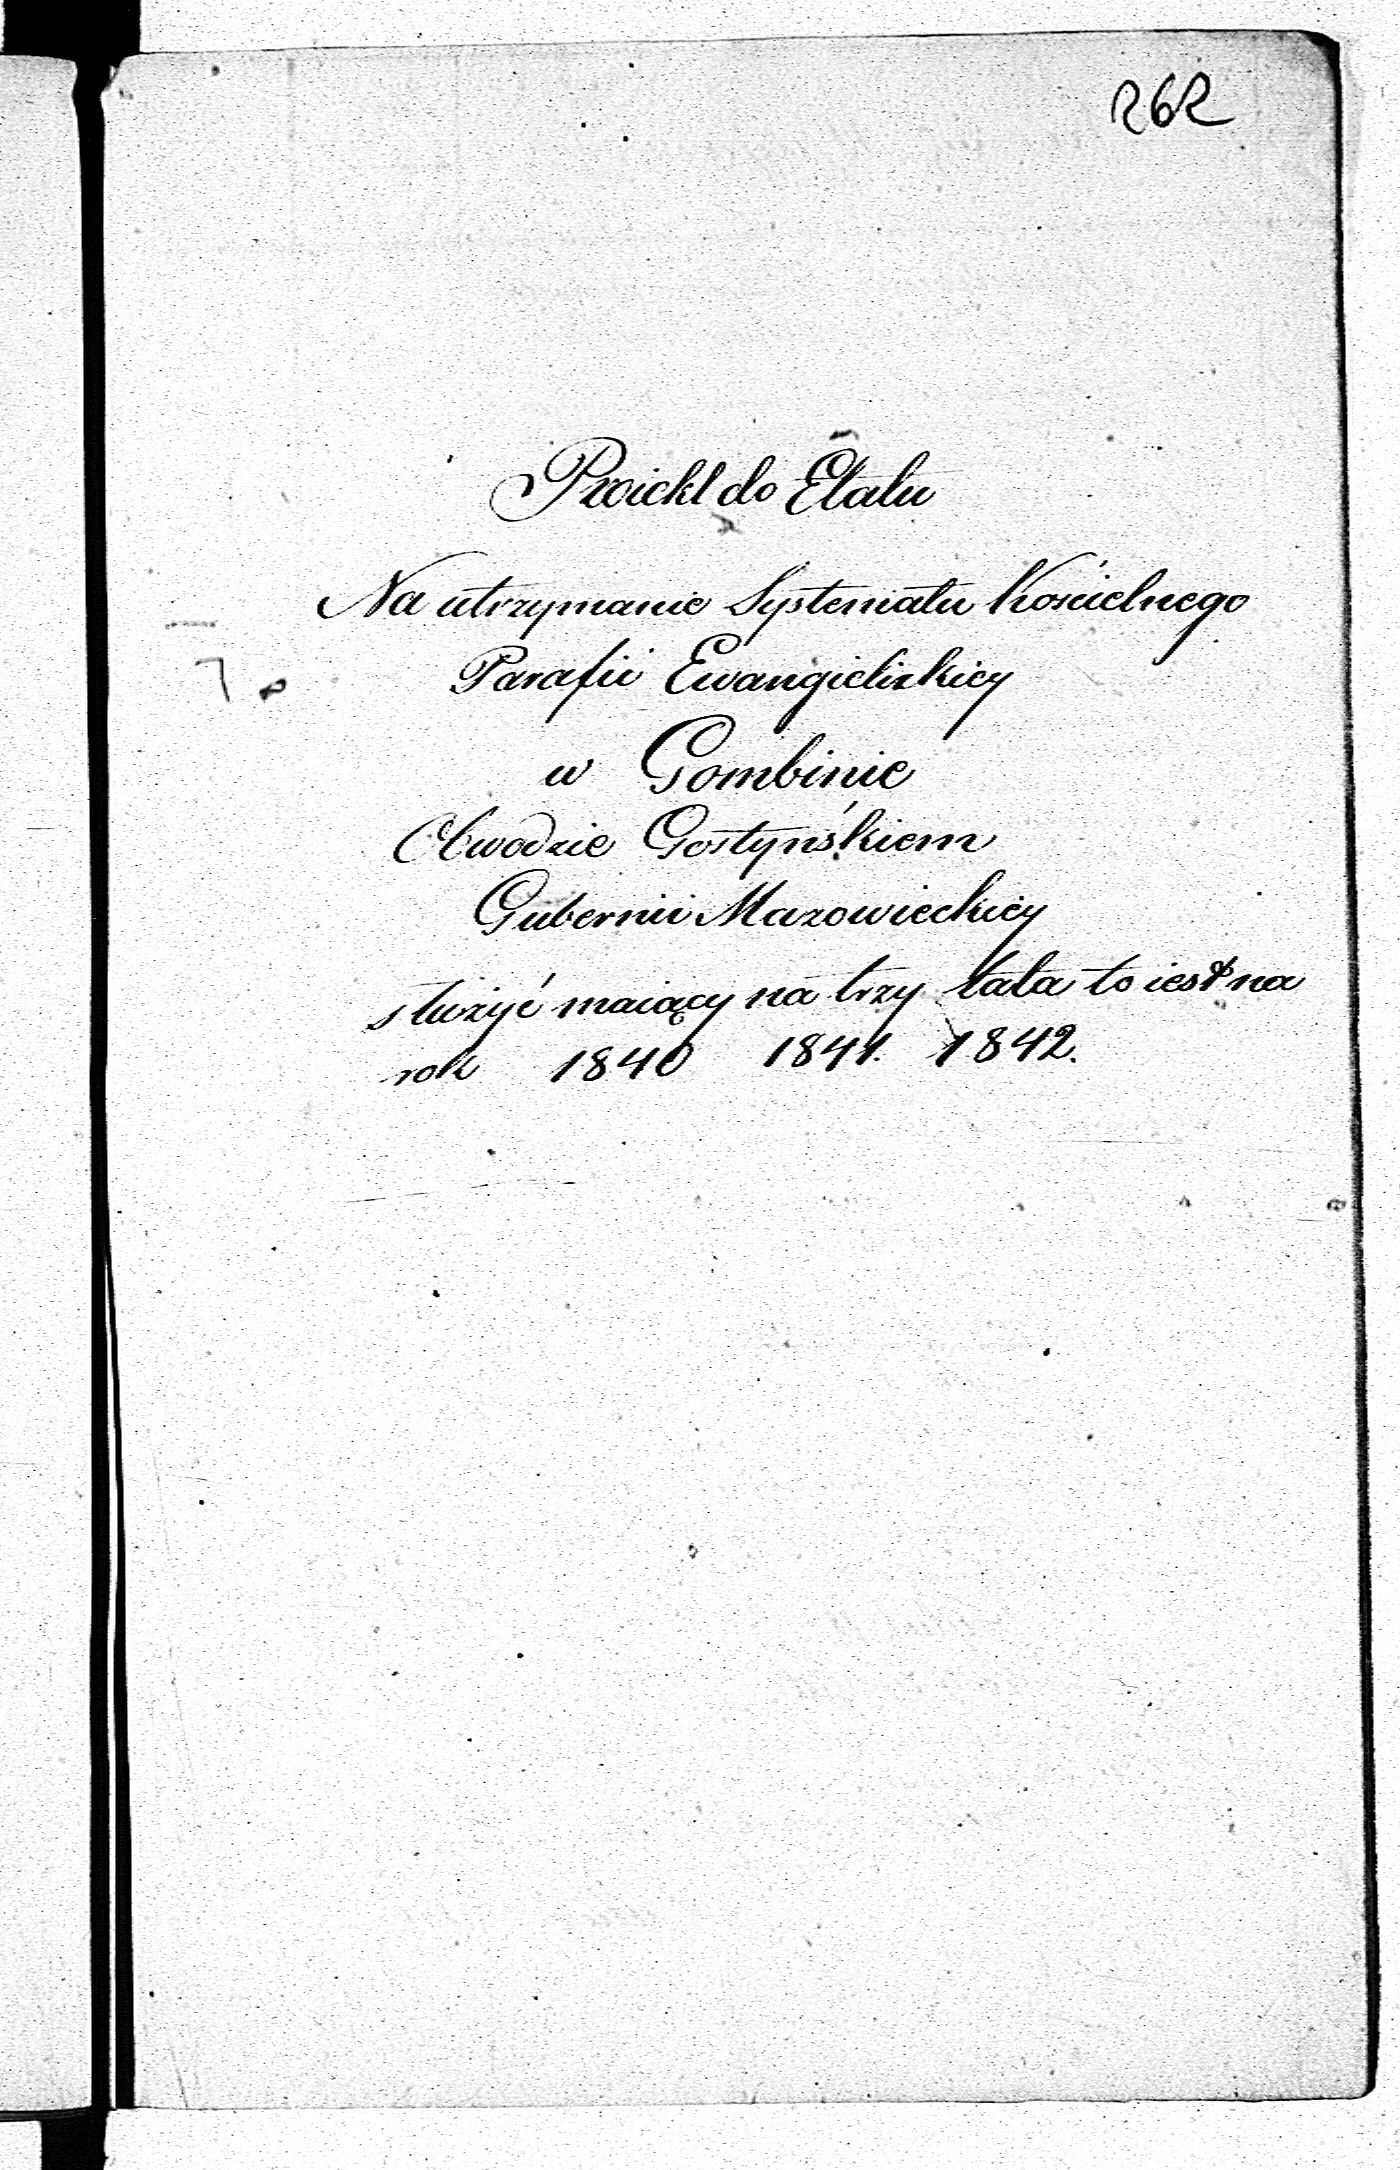 262
Proiekt do Etatu
Na utrzymanie Systematu Kościelnego
Parafii Ewangielizkiey
w Gombinie
Obwodzie Gostyńskiem
Gubernii Mazowieckiey
służyć maiący na trzy lata to iest na
rok 1840 1841. 1842.